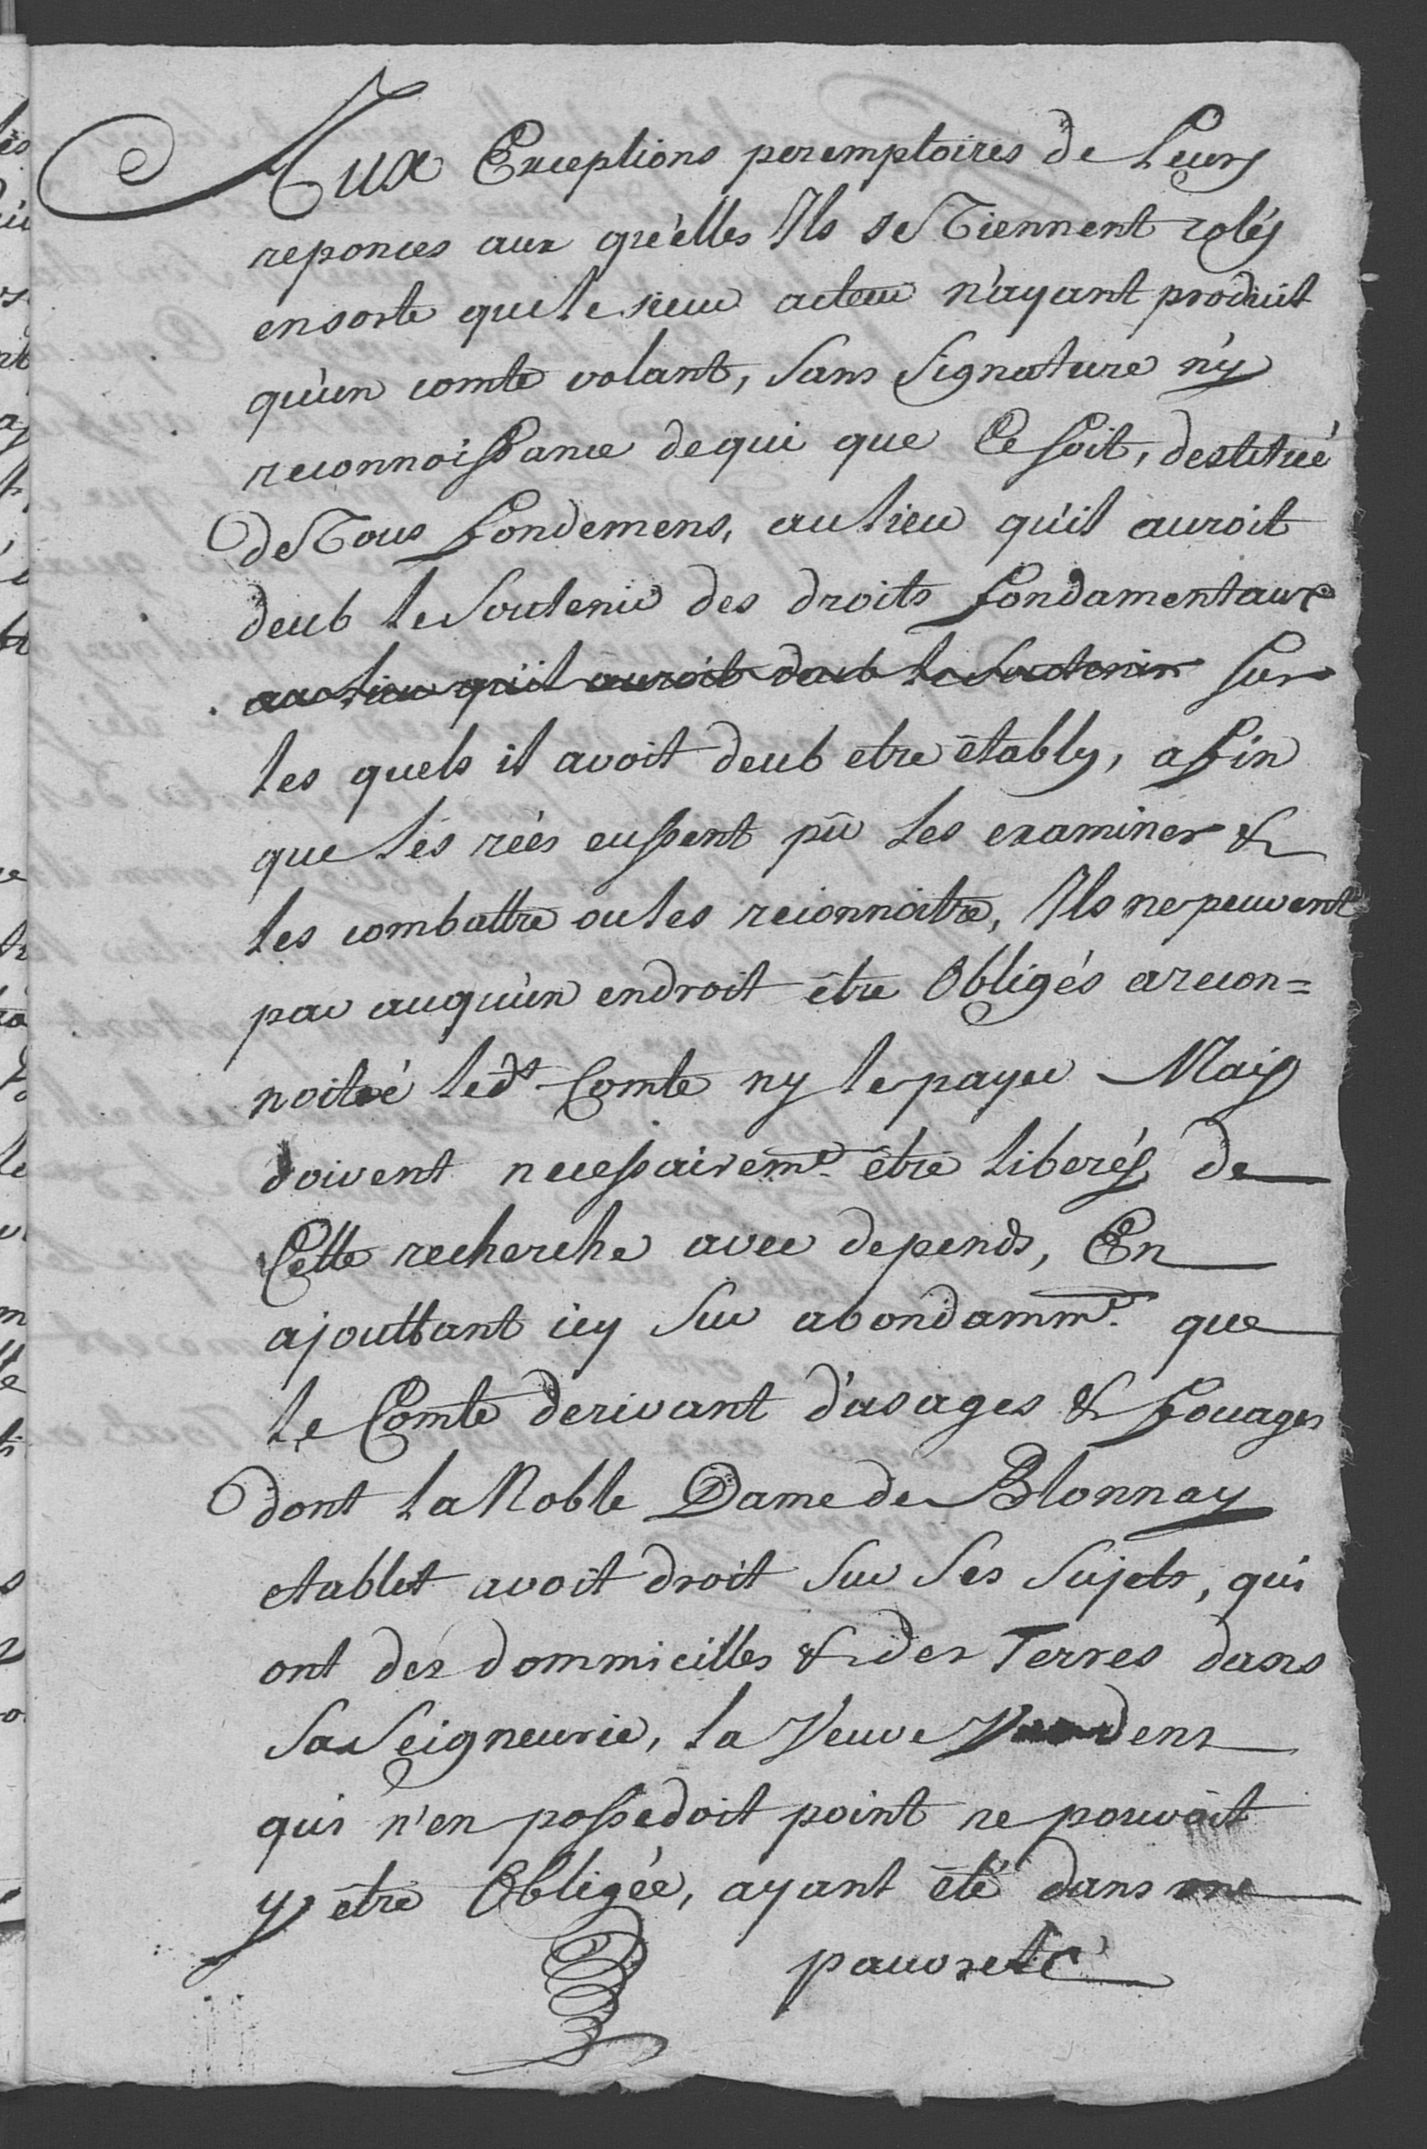 Aux Exceptions peremptoires de Leurs
reponces aux qu'elles Ils se Tiennent rolés
ensorte que le sieur acteur n'ayant produit
qu'un comte volant, sans signature n'y
reconnoissance de qui que Ce soit, destitué
de Tous fondemens, au lieu qu'il auroit
deub le soutenir des droits fondamentaux
au lieu qu'il auroit deub le soutenir sur
les quels il avoit deub etre étably, afin
que les rées eussent pû les examiner &
les combattre ou les reconnoitre, Ils ne peuvent
par auqu'un endroit être Obligés a recon=
noitré led.t Comte ny le payer Mais
doivent necessairem.t être liberés de
Cette recherche avec depends, En
ajouttant icy sur abondamm.t que
le Comte derivant d'usages & fouages
dont la Noble Dame de Blonnay
etablet avoit droit sur ses sujets, qui
ont des dommicilles & des Terres dans
sa seigneurie, la Veuve dens
qui n'en possedoit point ne pouvoit
y être Obligée, ayant été dans une
pauvreté